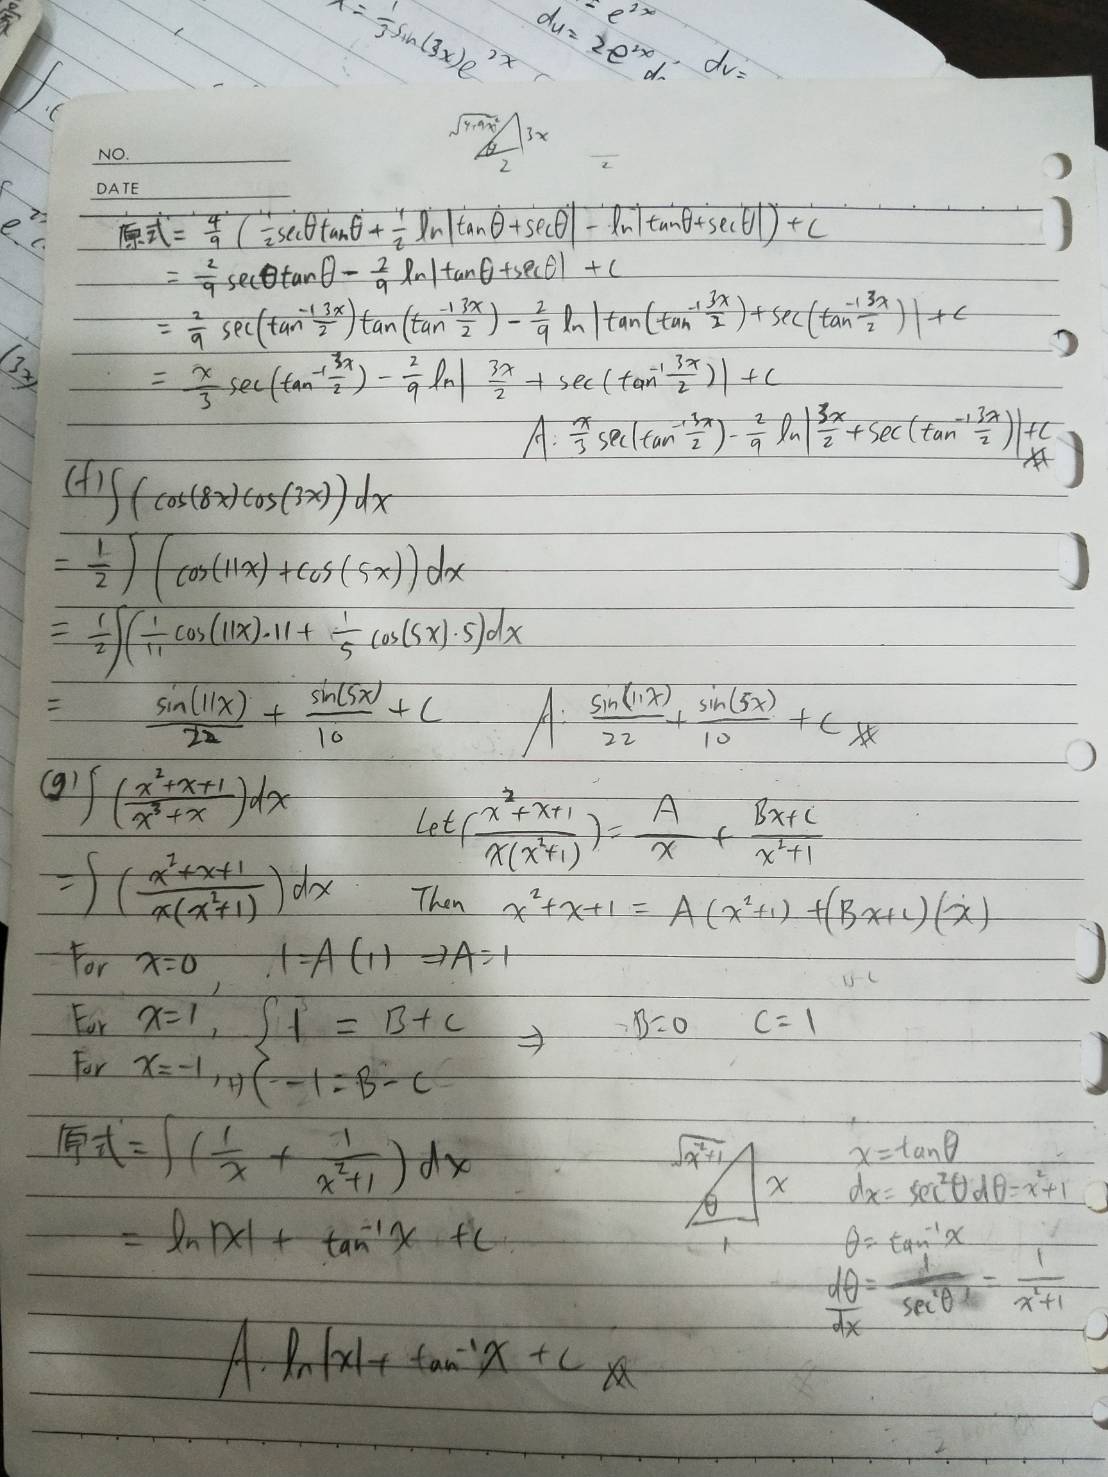 x = 1/3 sin(3x)e^2x
= e^2x
du = 2e^2x dv =
√(4+9x²) 3x
θ
2
NO.
DATE
原式 = 4/9 (1/2 secθtanθ + 1/2 ln|tanθ+secθ| - ln|tanθ+secθ|) + C
= 2/9 secθtanθ - 2/9 ln|tanθ+secθ| + C
= 2/9 sec(tan⁻¹ 3x/2) tan(tan⁻¹ 3x/2) - 2/9 ln|tan(tan⁻¹ 3x/2) + sec(tan⁻¹ 3x/2)| + C
= x/3 sec(tan⁻¹ 3x/2) - 2/9 ln| 3x/2 + sec(tan⁻¹ 3x/2)| + C
A: x/3 sec(tan⁻¹ 3x/2) - 2/9 ln|3x/2 + sec(tan⁻¹ 3x/2)| + C
(f) ∫(cos(8x)cos(3x))dx
= 1/2 ∫(cos(11x)+cos(5x))dx
= 1/2 ∫(1/11 cos(11x)·11 + 1/5 cos(5x)·5)dx
= sin(11x)/22 + sin(5x)/10 + C A: sin(11x)/22 + sin(5x)/10 + C
(g) ∫((x²+x+1)/(x³+x))dx Let((x²+x+1)/(x(x²+1))) = A/x + (Bx+C)/(x²+1)
= ∫((x²+x+1)/(x(x²+1)))dx Then x²+x+1 = A(x²+1) + (Bx+C)(x)
For x=0, 1=A(1) ⇒ A=1
For x=1, { 1 = B+C ⇒ B=0 C=1
For x=-1, { -1 = B-C
原式 = ∫(1/x + 1/(x²+1))dx √(x²+1) x x=tanθ
θ dx = sec²θdθ = x²+1
= ln|x| + tan⁻¹x + C 1 θ = tan⁻¹x
dθ/dx = 1/sec²θ = 1/(x²+1)
A: ln|x| + tan⁻¹x + C